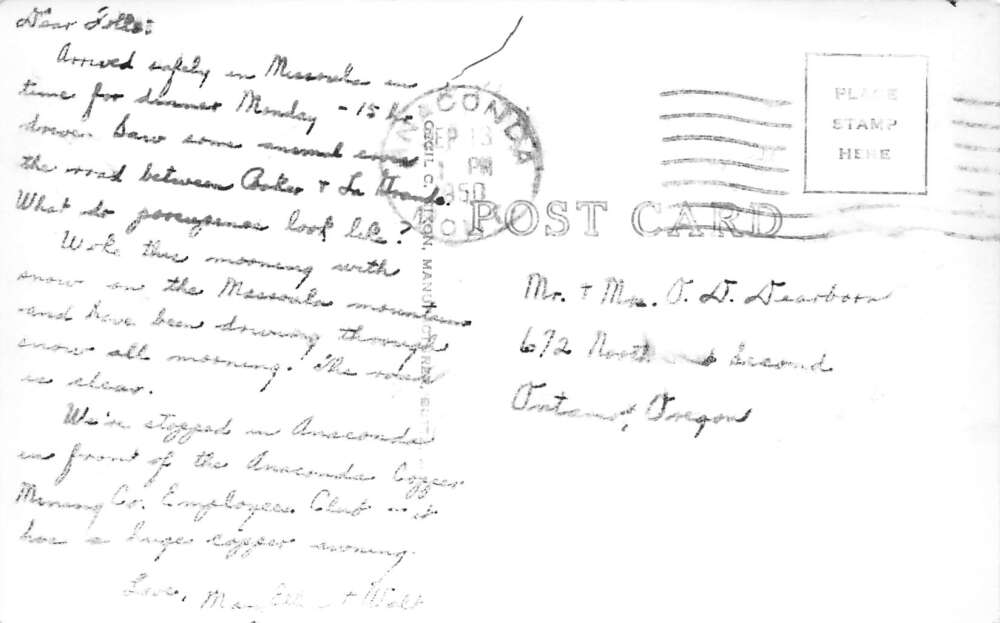 Dear Folks:
Arrived safely in Missoula in
time for dinner Monday - 15 hr
drive. Saw some animal cross
the road between Baker + La Grande.
What do porcupines look like?
Woke this morning with
snow on the Missoula mountains
and have been driving through
snow all morning. The road
is clear.
We're stopped in Anaconda
in front of the Anaconda Copper
Mining Co. Employees Club - it
has a huge copper awning.
Love, + Walt
ANACONDA
SEP 13
PM
1950
MONT.
PLACE
STAMP
HERE
POST CARD
Mr. + Mrs. O. D. Dearborn
672 Second
Ontario, Oregon
CECIL C. NIXON MANUFACTURER,